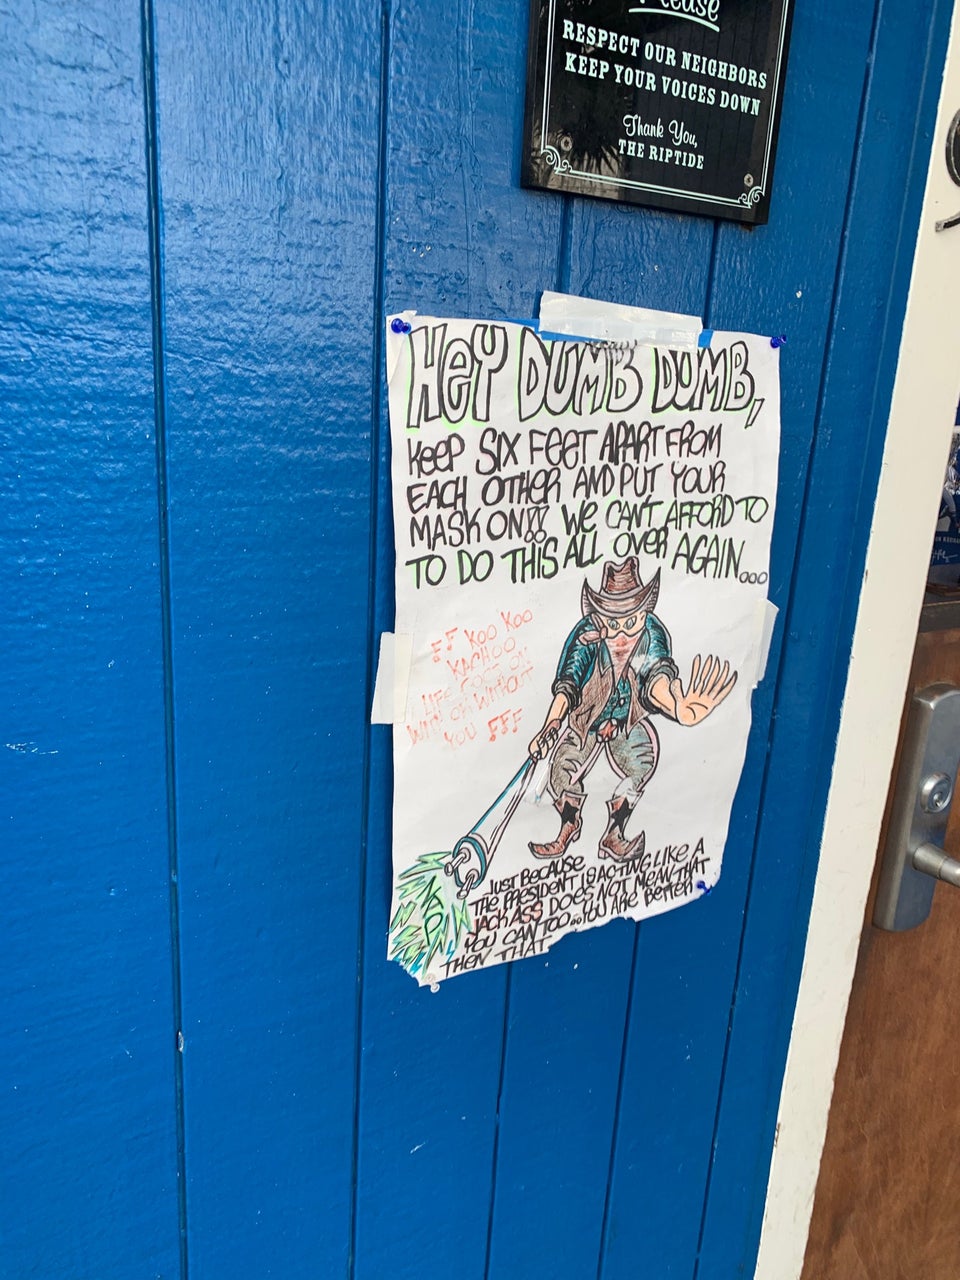 Please
RESPECT OUR NEIGHBORS
KEEP YOUR VOICES DOWN
Thank You,
THE RIPTIDE
HEY DUMB DUMB,
KEEP SIX FEET APART FROM
EACH OTHER AND PUT YOUR
MASK ON!! WE CAN'T AFFORD TO
TO DO THIS ALL OVER AGAIN...
KOO KOO
KACHOO
LIFE GOES ON
WITH OR WITHOUT
YOU
JUST BECAUSE
THE PRESIDENT IS ACTING LIKE A
JACK ASS DOES NOT MEAN THAT
YOU CAN TOO.. YOU ARE BETTER
THEN THAT